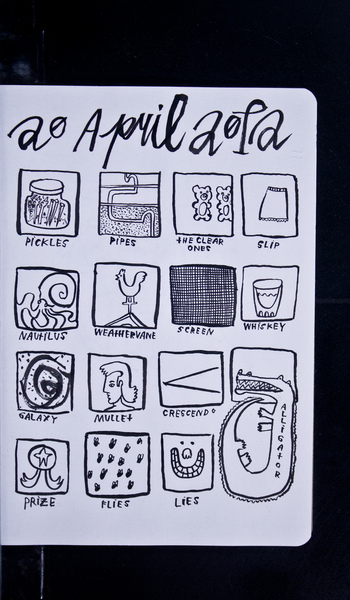 20 April 2012
PICKLES
PIPES
THE CLEAR
ONES
SLIP
NAUTILUS
WEATHERVANE
SCREEN
WHISKEY
GALAXY
MULLET
CRESCENDO
ALLIGATOR
PRIZE
FLIES
LIES